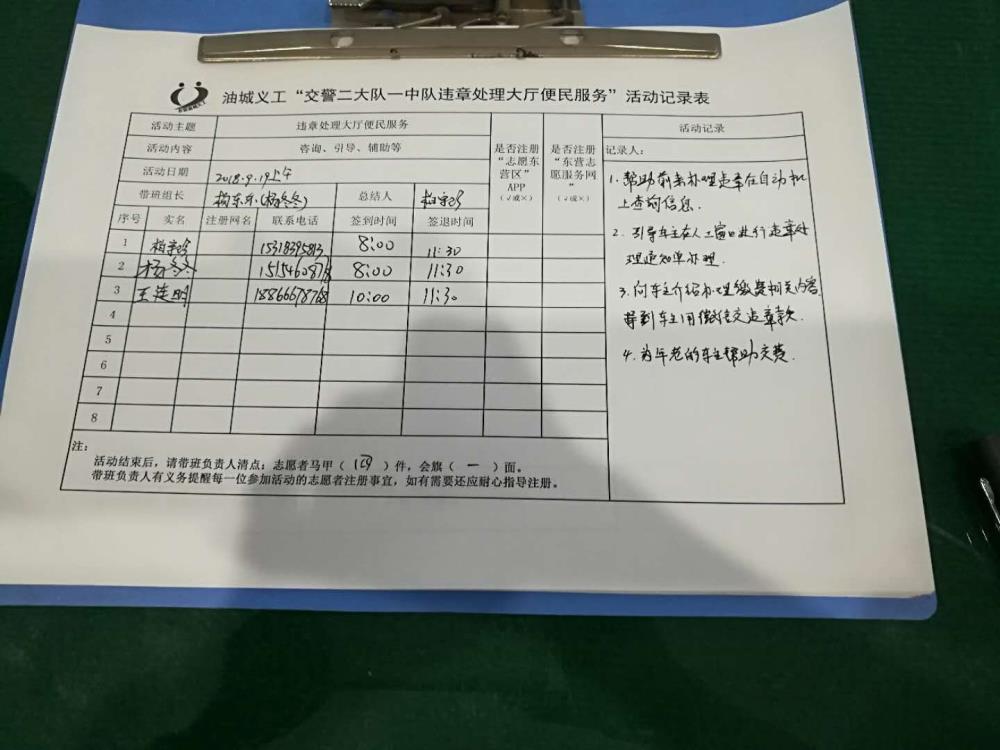 油城义工“交警二大队一中队违章处理大厅便民服务”活动记录表
活动主题 违章处理大厅便民服务
活动内容 咨询、引导、辅助等
活动日期 2018.9.19上午
带班组长 (杨冬冬) 总结人
序号 实名 注册网名 联系电话 签到时间 签退时间
是否注册“志愿东营区”APP（√或×）
是否注册“东营志愿服务网”（√或×）
1 15318395813 8:00 11:30
2 杨冬冬 8:00 11:30
3 王连明 10:00 11:30
4
5
6
7
8
活动记录
记录人：
1. 帮助前来办理违章在自动机
上查询信息.
2. 引导车主在人工窗口进行违章处
理通知单办理.
3. 向车主介绍办理缴费相关内容,
车主用微信交违章款.
4. 为年老的车主帮助交费.
注：
活动结束后，请带班负责人清点：志愿者马甲（ ）件，会旗（ 一 ）面。
带班负责人有义务提醒每一位参加活动的志愿者注册事宜，如有需要还应耐心指导注册。